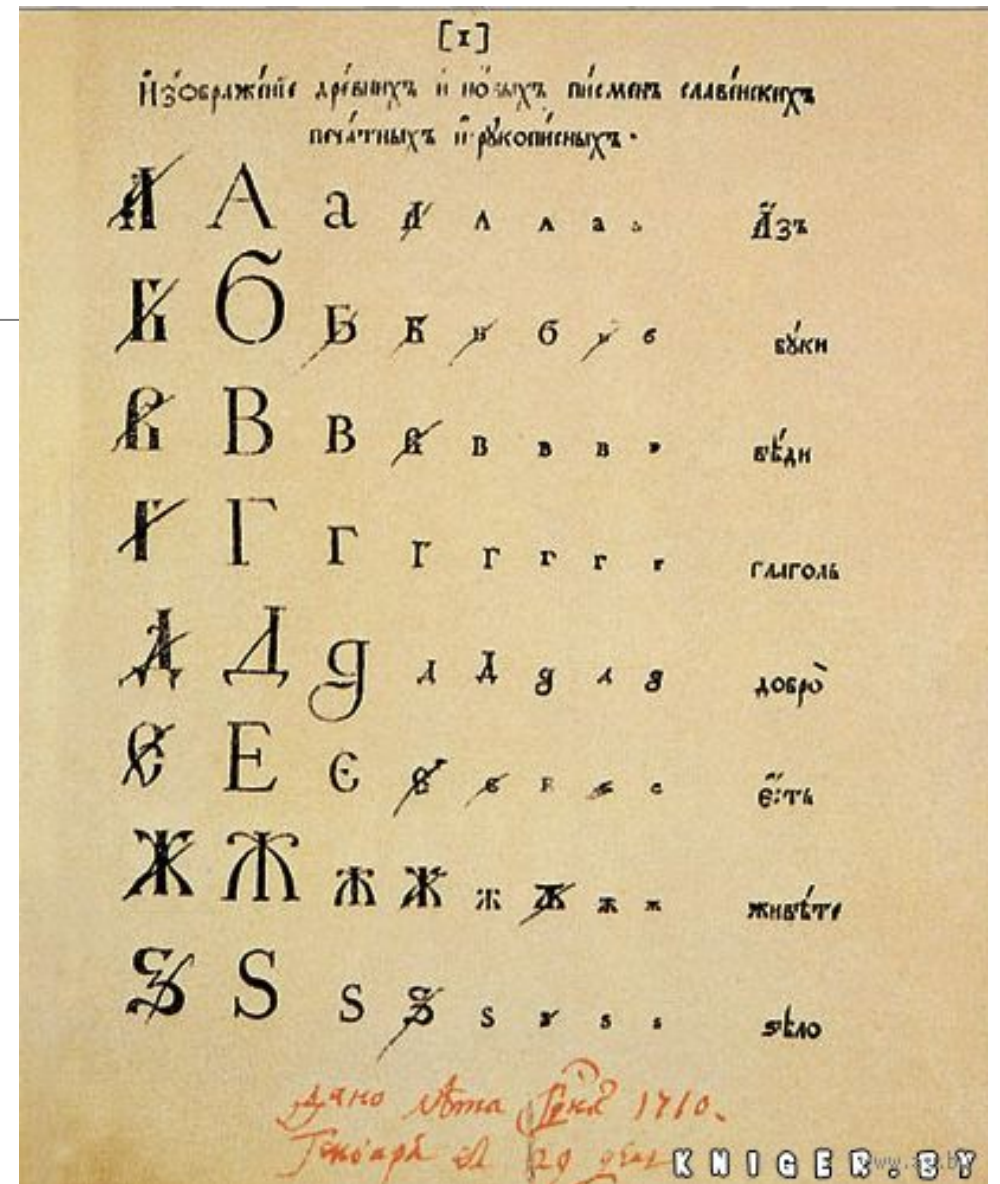 [1]
И҆зѡбраже́нїе дре́внихъ и҆ но́выхъ пи́сменъ славе́нскихъ
печа́тныхъ и҆ рꙋкопи́сныхъ.
А А а А А А а а А҆́зъ
Б Б Б Б Б б б б бꙋ́ки
В В В В В В В в вѣ́ди
Г Г Г Г Г Г Г г глаго́ль
Д Д д д Д д д д добро̀
Є Е є є є Е є є є҆́сть
Ж Ж ж Ж ж ж ж ж живѣ́те
Ѕ Ѕ ѕ Ѕ ѕ ѕ ѕ ѕ ѕѣлѡ
Дано лѣта 1710.
Генваря в 29 день
KNIGER.BY